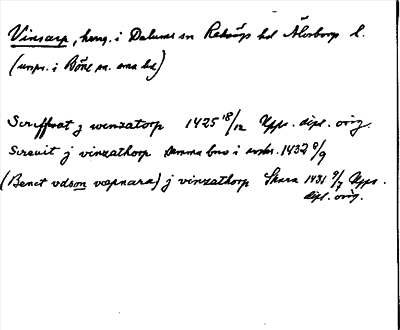 Vinsarp, hmg. i Dalums sn Redvägs hd Älvsborgs l.
(urspr. i Böne sn. sma hd)
j wenzatorp 1425 18/12 Upps. dipl. orig.
j vinzathorp samma brev i avskr. 1432 9/9
(Benct vdson væpnara) j vinzathorp Skara 1481 9/7 Upps.
dipl. orig.